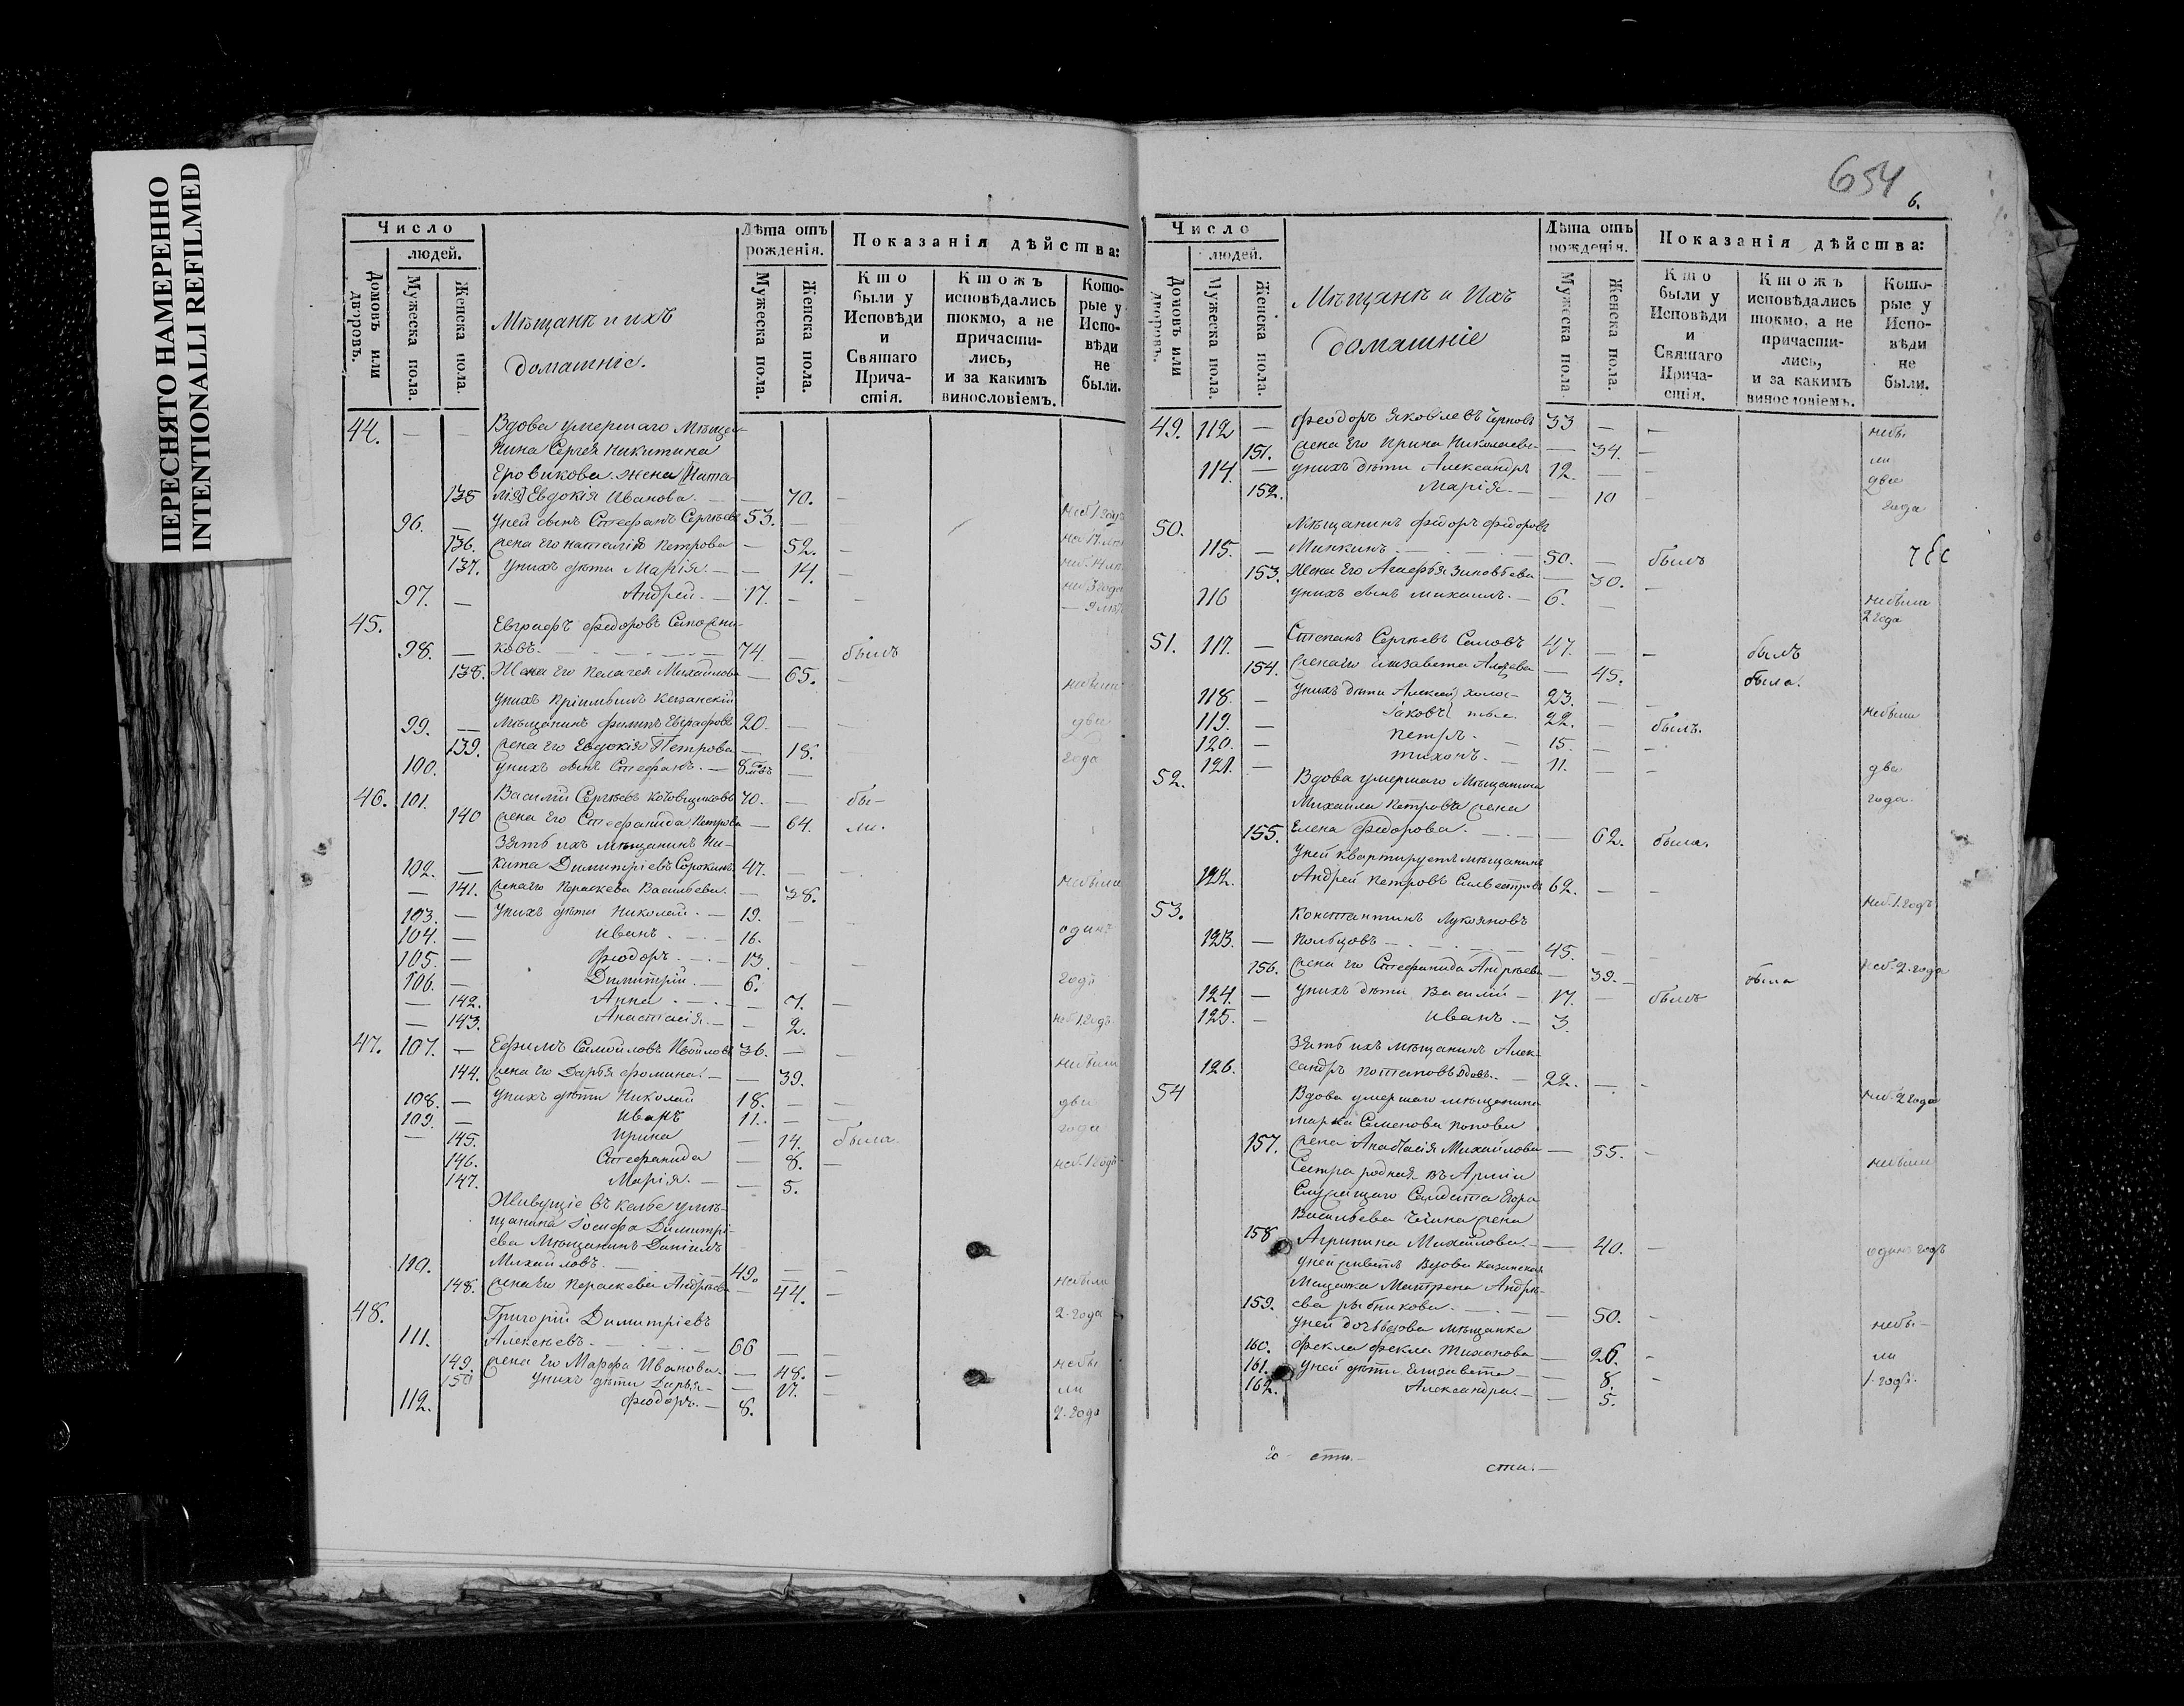 ПЕРЕСНЯТО НАМЕРЕННО
INTENTIONALLI REFILMED
Число
людей.
Домовъ или дворовъ.
Мужеска пола.
Женска пола.
Мѣщанѣ и ихъ
домашніе.
Лѣта отъ рожденія.
Мужеска пола.
Женска пола.
Показанія дѣйства:
Кто были у Исповѣди и Святаго Прича-стія.
Ктожъ исповѣдались токмо, а не причасти-лись, и за какимъ винословіемъ.
Кото-рые у Испо-вѣди не были.
44. — Вдова умершаго Мѣща-
нина Сергея Никитина
Еровикова жена
135 Евдокія Иванова. — — 70. —
96. — у ней сынъ Стефанъ Сергѣевъ 53. — неб. 1 годъ
136. жена его Наталія Петрова — 52. —
137. у нихъ дѣти Марія. — — 14. —
97. — Андрей. — 17. —
45. Евграфъ Федоровъ Сапожни-
98. — ковъ. — 74. — былъ
138. Жена его Пелагея Михайлова — 65. — небыли
у нихъ Казанскій
99. — Мѣщанинъ Филипъ Евграфовъ 20. — — два
139. жена его Евдокія Петрова — 18. года
100. у нихъ сынъ Стефанъ. — 8 —
46. 101. Василий Сергѣевъ 70. — бы-
140 жена его Стефанида Петрова — 64. ли.
Зять ихъ мѣщанинъ Ни-
102. — кита Димитріевъ Сорокинъ 47.
— 141. жена его Параскева Васильева. — 38. небыли
103. — у нихъ дѣти Николай. — 19. —
104. — Иванъ. — 16. одинъ
105. — Феодоръ. — 13 —
106. — Димитрій. — 6. годъ
— 142. Анна. — 7. —
— 143. Анастасія. — — 2. неб. 1. годъ.
47. 107. — Ефимъ Самойловъ 36. — —
144. жена его Дарья Фомина. — — 39. небыли
108. — у нихъ дѣти Николай 18. — — два
109. — Иванъ 11. — — года
— 145. Ирина — 14. была.
146. Стефанида — 8. — неб. 1 годъ
147. Марія. — — 5.
Живущіе въ кельѣ у мѣ-
щанина Іосифа Димитрі-
ева Мѣщанинъ Даніилъ
110. Михайловъ. — 49. — —
148. жена его Параскева Андрѣева — 44. — небыли
48. Григорій Димитріевъ 2. года
111. Алексѣевъ. — 66 — —
149. жена его Марфа Иванова. — — 48. — небы
150 у нихъ дѣти Дарья — — 17. — ли
112. Феодоръ. — 8. 2. года
654
6.
Число
людей.
Домовъ или дворовъ.
Мужеска пола.
Женска пола.
Мѣщанѣ и Ихъ
домашніе
Лѣта отъ рожденія.
Мужеска пола.
Женска пола.
Показанія дѣйства:
Кто были у Исповѣди и Святаго Прича-стія.
Ктожъ исповѣдались токмо, а не причасти-лись, и за какимъ винословіемъ.
Кото-рые у Испо-вѣди не были.
49. 112 — Феодоръ Яковлевъ Черновъ 33 — — небы
151. жена его Ирина Николаева — 34. — ли
114. — у нихъ дѣти Александръ 12. — — две
152. Марія. — — 10 года
50. Мѣщанинъ Федоръ Федоровъ
115. — Минкинъ. — 50. — былъ
153. Жена его Агафья Зиновьева — 30. —
116 у нихъ сынъ Михаилъ. — 6. — небыли 2 года
51. 117. — Степанъ Сергѣевъ Саловъ 47. — — былъ
154. жена его Елизавета — 45. была.
118. — у нихъ дѣти Алексей 23. — —
119. — Іаковъ 22. — былъ. небыли
120. — Петръ. — 15. — —
121. — Тихонъ. — 11. — — два
52. Вдова умершаго Мѣщанина
Михаила Петрова жена года.
155. Елена Федорова. — — 62. была.
у ней квартируетъ мѣщанинъ
122. Андрей Петровъ Сильвестровъ 62. — — неб. 1. годъ
53. Константинъ Лукояновъ
123. — Кольцовъ — 45. — —
156. жена его Стефанида Андрѣева — 39. — была неб. 2. года
124. — у нихъ дѣти Василій — 17. — былъ
125. — Иванъ. — 3.
Зять ихъ мѣщанинъ Алек-
126. сандръ Потаповъ вдовъ. — 22. — —
54 Вдова умершаго мѣщанина неб. 2 года
Марка Семенова Попова
157. жена Анастасія Михайлова — 55. —
Сестра родная въ Арміи небыли
Служащаго Салдата Егора
Васильева жена
158 Агрипина Михайлова. — — 40. — одинъ годъ
у ней живетъ Вдова Казанская
Мещанка Матрена Андрѣ-
159. ева Рыбникова. — — 50. —
у ней дочь вдова мѣщанка небы-
160. Фекла Фекла Тиханова — 26. — ли
161. у ней дѣти Елизавета — — 8. — 1. годъ.
162. Александра. — — 5.
сти.—
сти.—